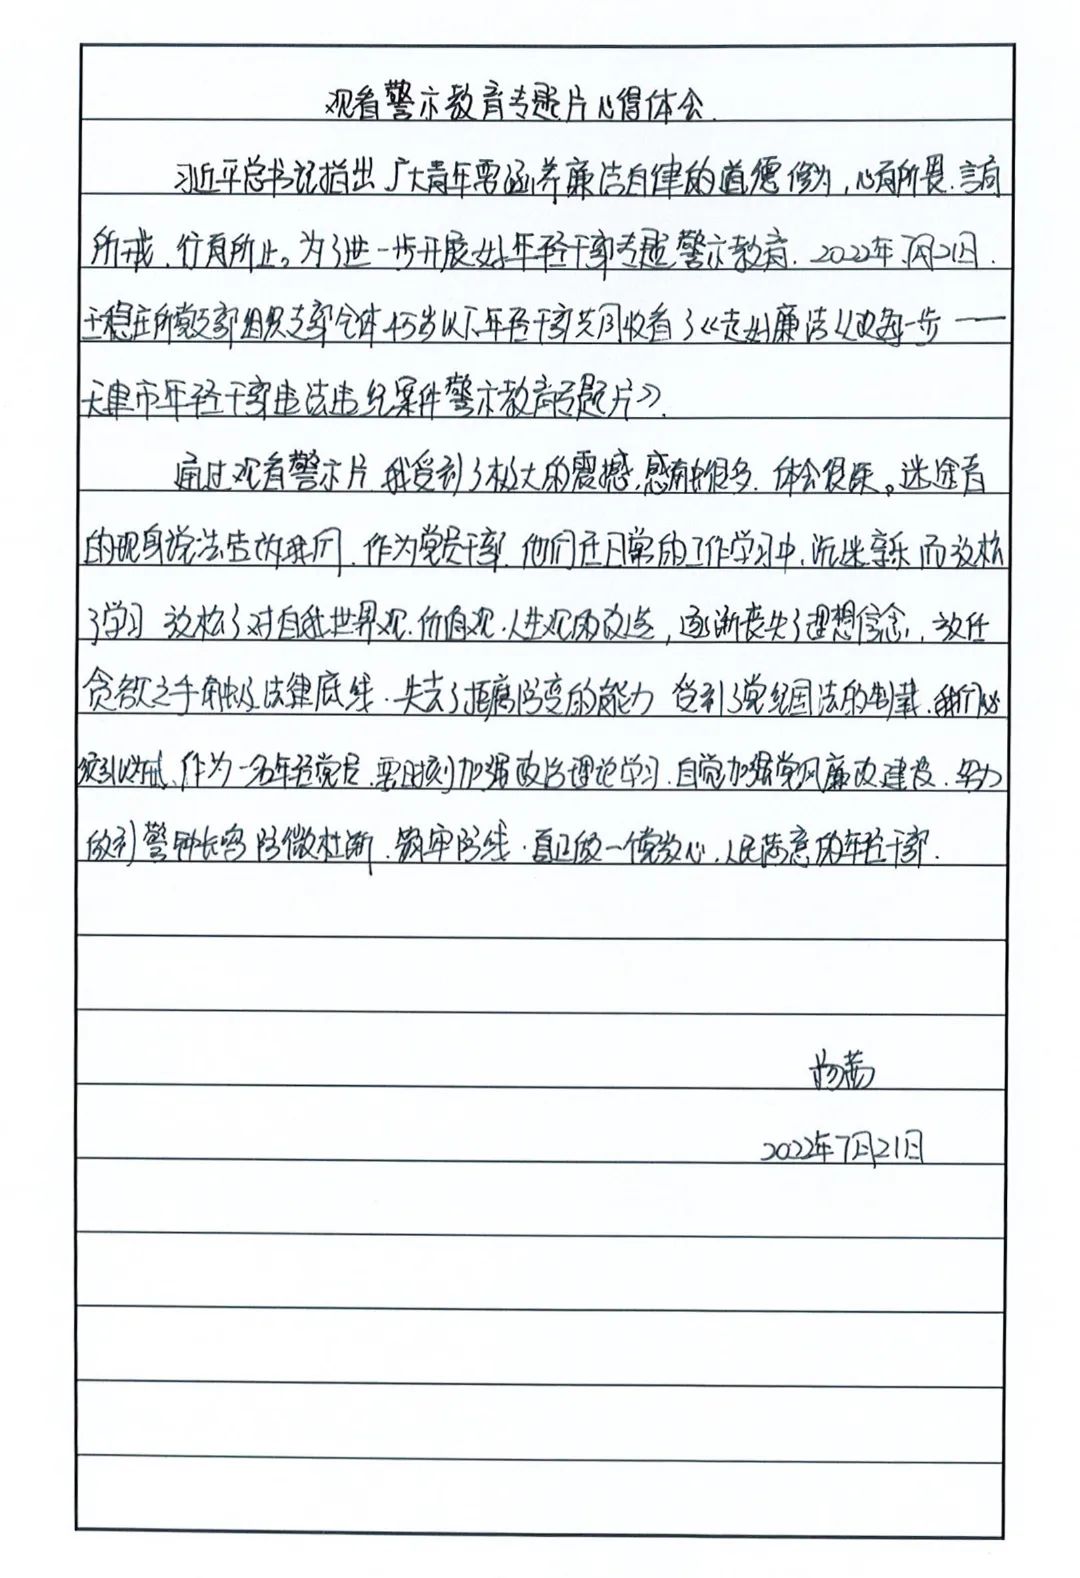 观看警示教育专题片心得体会.
习近平总书记指出广大青年要涵养廉洁自律的道德修为，心有所畏、言有
所戒、行有所止。为了进一步开展好年轻干部专题警示教育. 2022年7月21日.
王稳庄所党支部组织支部全体45岁以下年轻干部共同收看了《走好廉洁从政每一步——
天津市年轻干部违法违纪案件警示教育专题片》.
通过观看警示片 我受到了极大的震撼，感触很多. 体会很深。迷途者
的现身说法告诫我们. 作为党员干部. 他们在日常的工作学习中，沉迷享乐 而放松
了学习 放松了对自我世界观.价值观.人生观的改造，逐渐丧失了理想信念，放任
贪欲之手触及法律底线. 失去了拒腐防变的能力 受到了党纪国法的制裁. 我们必
须引以为戒、作为一名年轻党员 要时刻加强政治理论学习. 自觉加强党风廉政建设. 努力
做到警钟长鸣 防微杜渐. 筑牢防线. 真正做一个党放心.人民满意的年轻干部.
杨茜
2022年7月21日